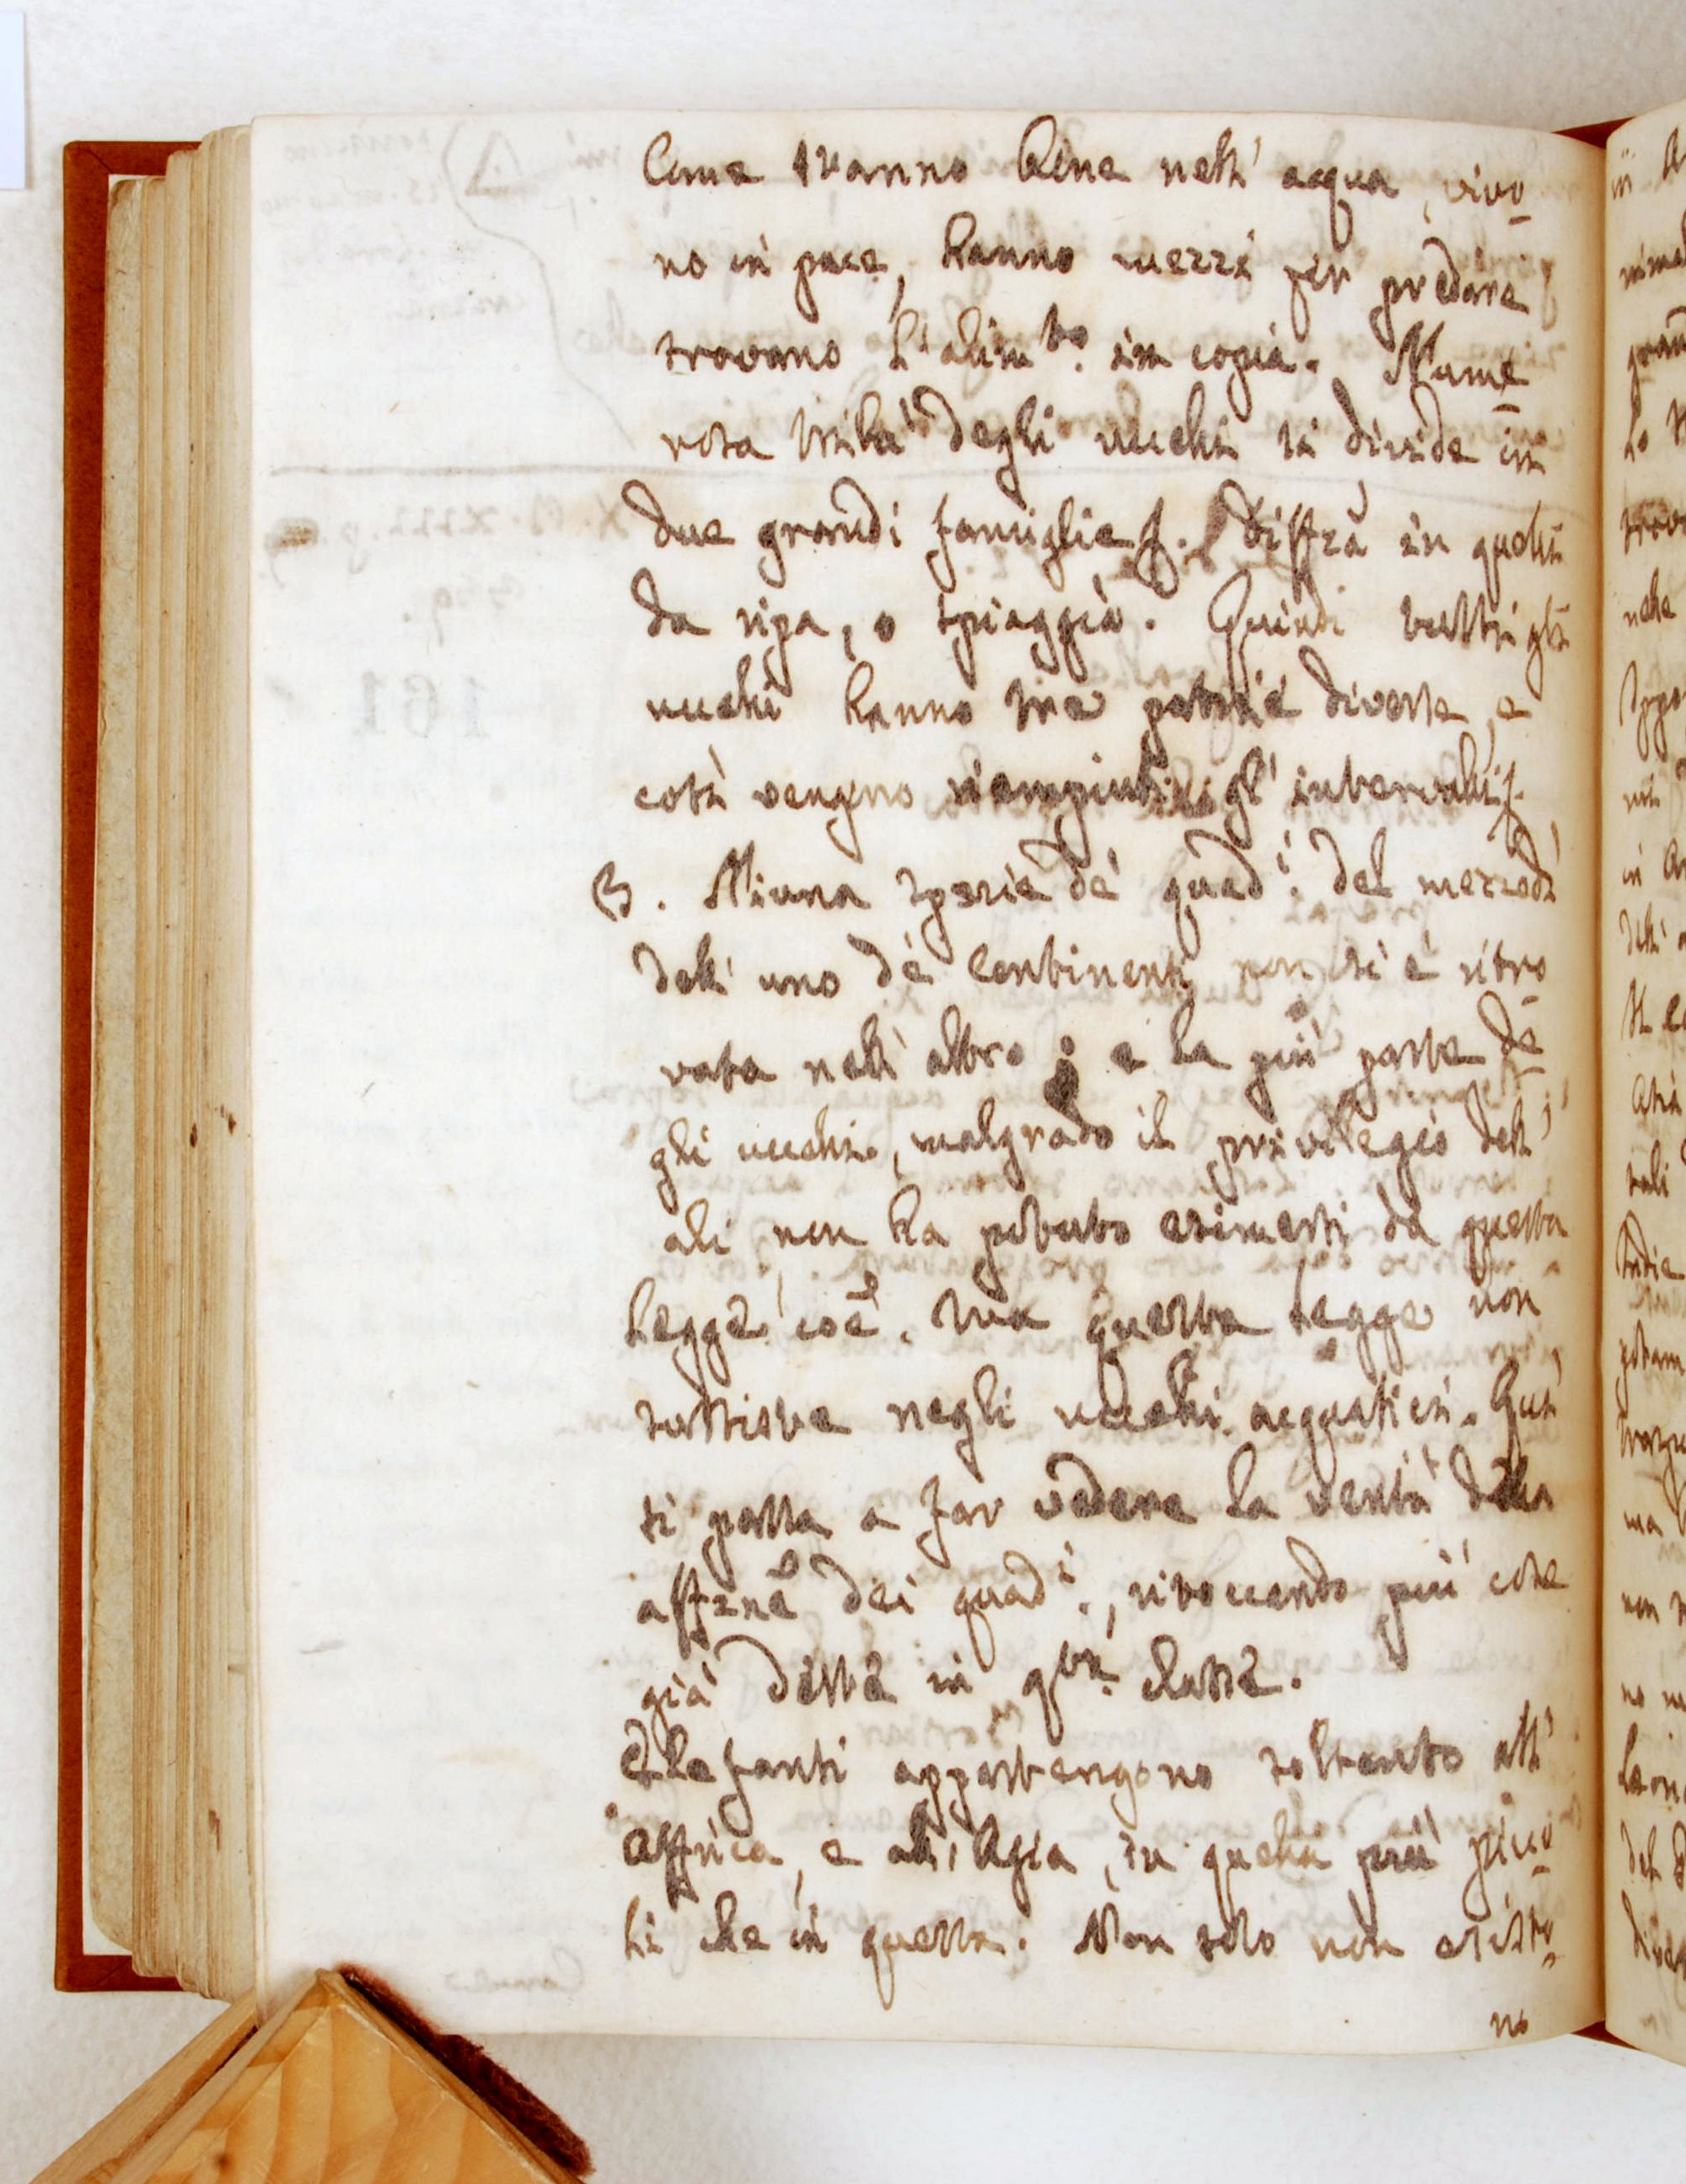 Come stanno bene nell' acqua, vivo-
no in pace, hanno mezzi per predare
trovano l' alim.to in copia. Nume-
rosa tribù degli uccelli si divide in
due grandi famiglie f. Diffzà in quelli
da ripa, o spiaggia. Quindi tutti gli
uccelli hanno tre patrie diverse, e
così vengono riempiuti gl' intervalli f.
B. Niuna spezie de' quad.i del mezzodì
dell' uno de' continenti non si è ritro-
vata nell' altro; e la più parte de-
gli uccelli, malgrado il privilegio dell'
ali non ha potuto esimersi da questa
legge coe. Ma questa legge non
sussiste negli uccelli acquatici. Qui
si passa a far vedere la verità della
affzne dei quad.i, ritoccando più cose
già dette in q.ta classe.
Elefanti appartengono soltanto all'
Affrica, e all' Asia, in quella più picco-
li che in questa. Non solo non esisto-
no